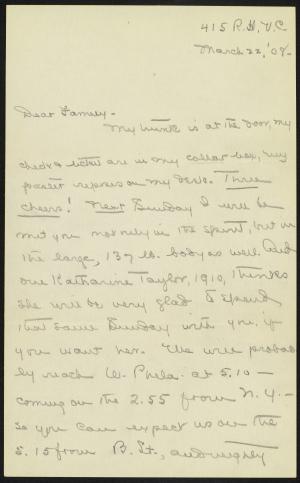 415 R.H., V.C.
March 22, '08.
Dear Family -
My trunk is at the door, my
check & ticket are in my collar box, my
pocket reposes on my desk. Three
cheers! Next Sunday I will be
with you not only in the spirit, but in
the large, 137 lb. body as well. And
one Katharine Taylor, 1910, thinks
she will be very glad to spend
that same Sunday with you, if
you want her. We will probab-
ly reach W. Phila. at 5.10 —
coming on the 2.55 from N.Y. —
so you can expect us on the
5.15 from B. St., and